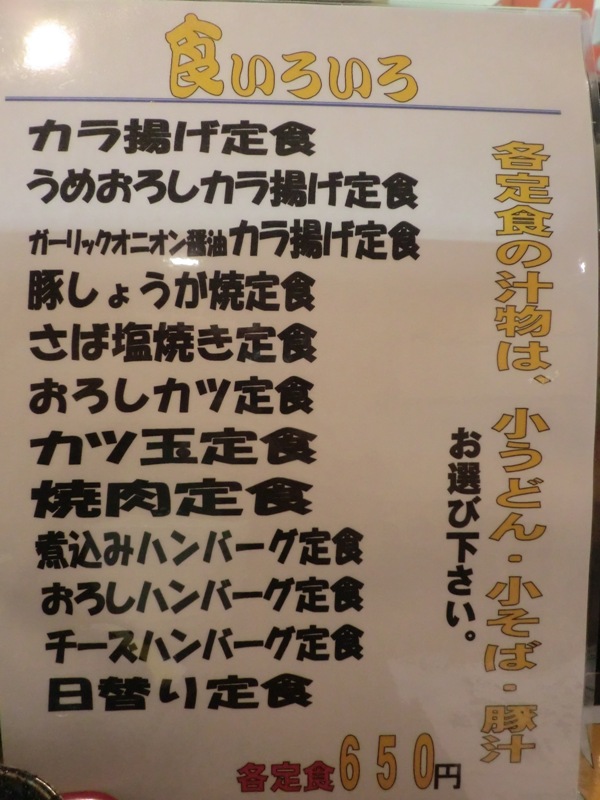 食いろいろ
カラ揚げ定食
うめおろしカラ揚げ定食
ガーリックオニオン醤油カラ揚げ定食
豚しょうが焼定食
さば塩焼き定食
おろしカツ定食
カツ玉定食
焼肉定食
煮込みハンバーグ定食
おろしハンバーグ定食
チーズハンバーグ定食
日替り定食
各定食の汁物は、小うどん・小そば・豚汁
お選び下さい。
各定食650円